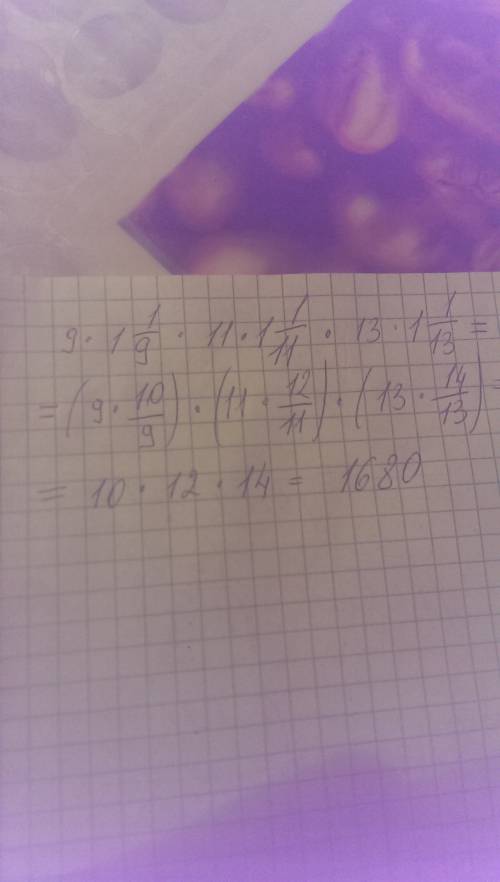 9 · 1 1/9 · 11 · 1 1/11 · 13 · 1 1/13 =
= (9 · 10/9) · (11 · 12/11) · (13 · 14/13) =
= 10 · 12 · 14 = 1680